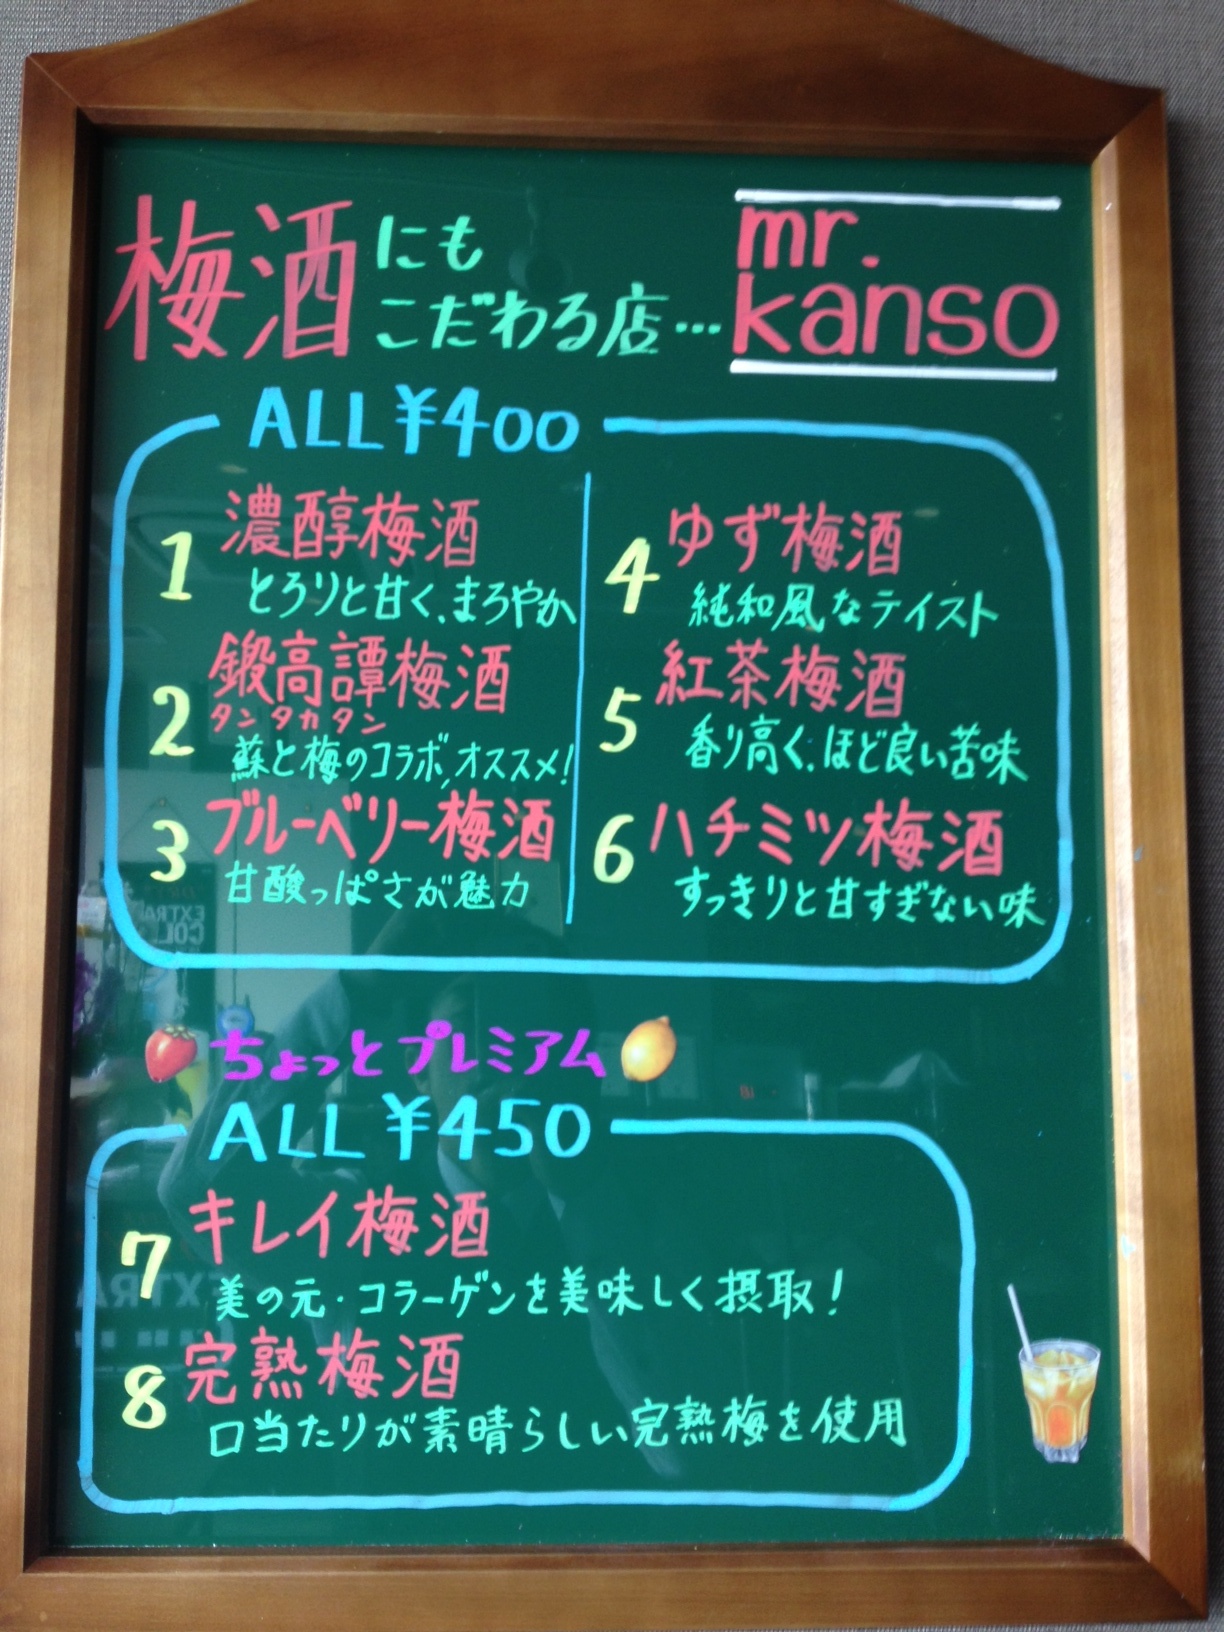 梅酒にも
こだわる店…
mr.
kanso
ALL ¥400
1 濃醇梅酒
とろりと甘く、まろやか
2 鍛高譚梅酒
タンタカタン
蘇と梅のコラボ、オススメ!
3 ブルーベリー梅酒
甘酸っぱさが魅力
4 ゆず梅酒
純和風なテイスト
5 紅茶梅酒
香り高く、ほど良い苦味
6 ハチミツ梅酒
すっきりと甘すぎない味
ちょっとプレミアム
ALL ¥450
7 キレイ梅酒
美の元・コラーゲンを美味しく摂取!
8 完熟梅酒
口当たりが素晴らしい完熟梅を使用